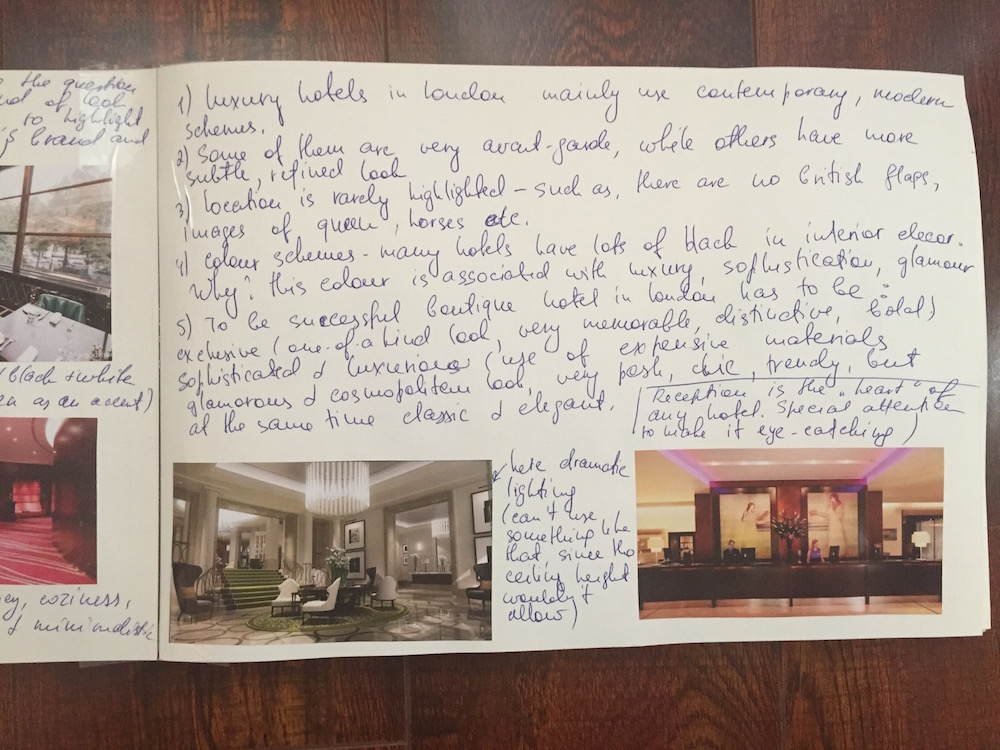 e the question
nd of look
to highlight
's brand and
black + white
en as an accent)
ey, coziness,
& minimalistic
1) Luxury hotels in London mainly use contemporary, modern
schemes.
2) Some of them are very avant-garde, while others have more
subtle, refined look
3) Location is rarely highlighted – such as, there are no British flags,
images of queen, horses etc.
4) Colour schemes - many hotels have lots of black in interior decor.
Why? this colour is associated with luxury, sophistication, glamour
5) To be successful boutique hotel in London has to be:
exclusive (one-of-a kind look, very memorable, distinctive, bold)
sophisticated & luxurious (use of expensive materials
glamorous & cosmopolitan look, very posh, chic, trendy, but
at the same time classic & elegant.
(Reception is the "heart" of
any hotel. Special attention
to make it eye-catching)
here dramatic
lighting
(can't use
something like
that, since the
ceiling height
wouldn't
allow)